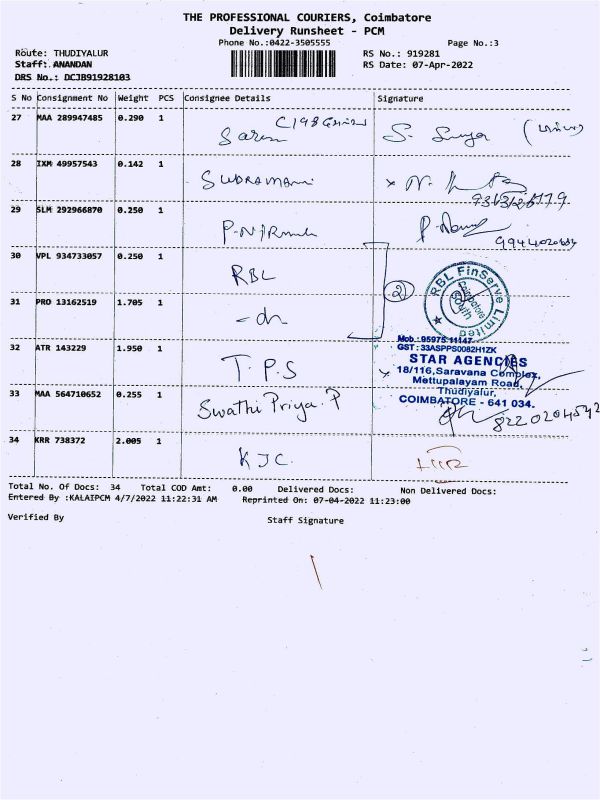 THE PROFESSIONAL COURIERS, Coimbatore
Delivery Runsheet - PCM
Phone No.:0422-3505555
Page No.:3
Route: THUDIYALUR
RS No.: 919281
Staff: ANANDAN
RS Date: 07-Apr-2022
DRS No.: DCJB91928103
S No Consignment No Weight PCS Consignee Details Signature
27 MAA 289947485 0.290 1
28 IXM 49957543 0.142 1
29 SLM 292966870 0.250 1
30 VPL 934733057 0.250 1 RBL
RBL FinServe Limited
Coimbatore
South
31 PRO 13162519 1.705 1 - do
2
Mob : 95975 11147
GST : 33ASPPS0082H1ZK
STAR AGENCIES
18/116, Saravana Complex,
Mettupalayam Road,
Thudiyalur,
COIMBATORE - 641 034.
32 ATR 143229 1.950 1 T.P.S
33 MAA 564710652 0.255 1 Swathi Priya. P
34 KRR 738372 2.005 1 KJC.
Total No. Of Docs: 34 Total COD Amt: 0.00 Delivered Docs: Non Delivered Docs:
Entered By :KALAIPCM 4/7/2022 11:22:31 AM Reprinted On: 07-04-2022 11:23:00
Verified By
Staff Signature